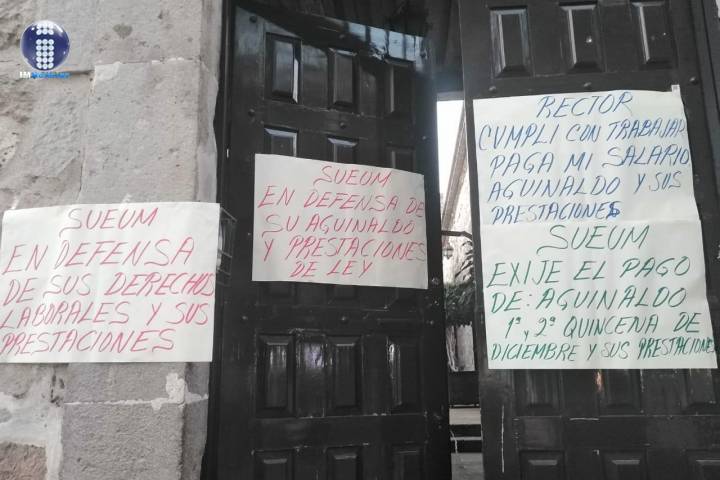 SUEUM
EN DEFENSA
DE SUS DERECHOS
LABORALES Y SUS
PRESTACIONES
SUEUM
EN DEFENSA DE
SU AGUINALDO
Y PRESTACIONES
DE LEY
RECTOR
CUMPLI CON TRABAJAR
PAGA MI SALARIO
AGUINALDO Y SUS
PRESTACIONES
SUEUM
EXIJE EL PAGO
DE: AGUINALDO
1ª, y 2ª QUINCENA DE
DICIEMBRE Y SUS PRESTACIONES